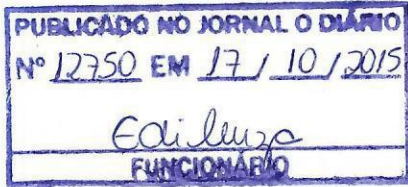 PUBLICADO NO JORNAL O DIÁRIO
Nº 12750 EM 17 / 10 / 2015
Edileuza
FUNCIONÁRIO